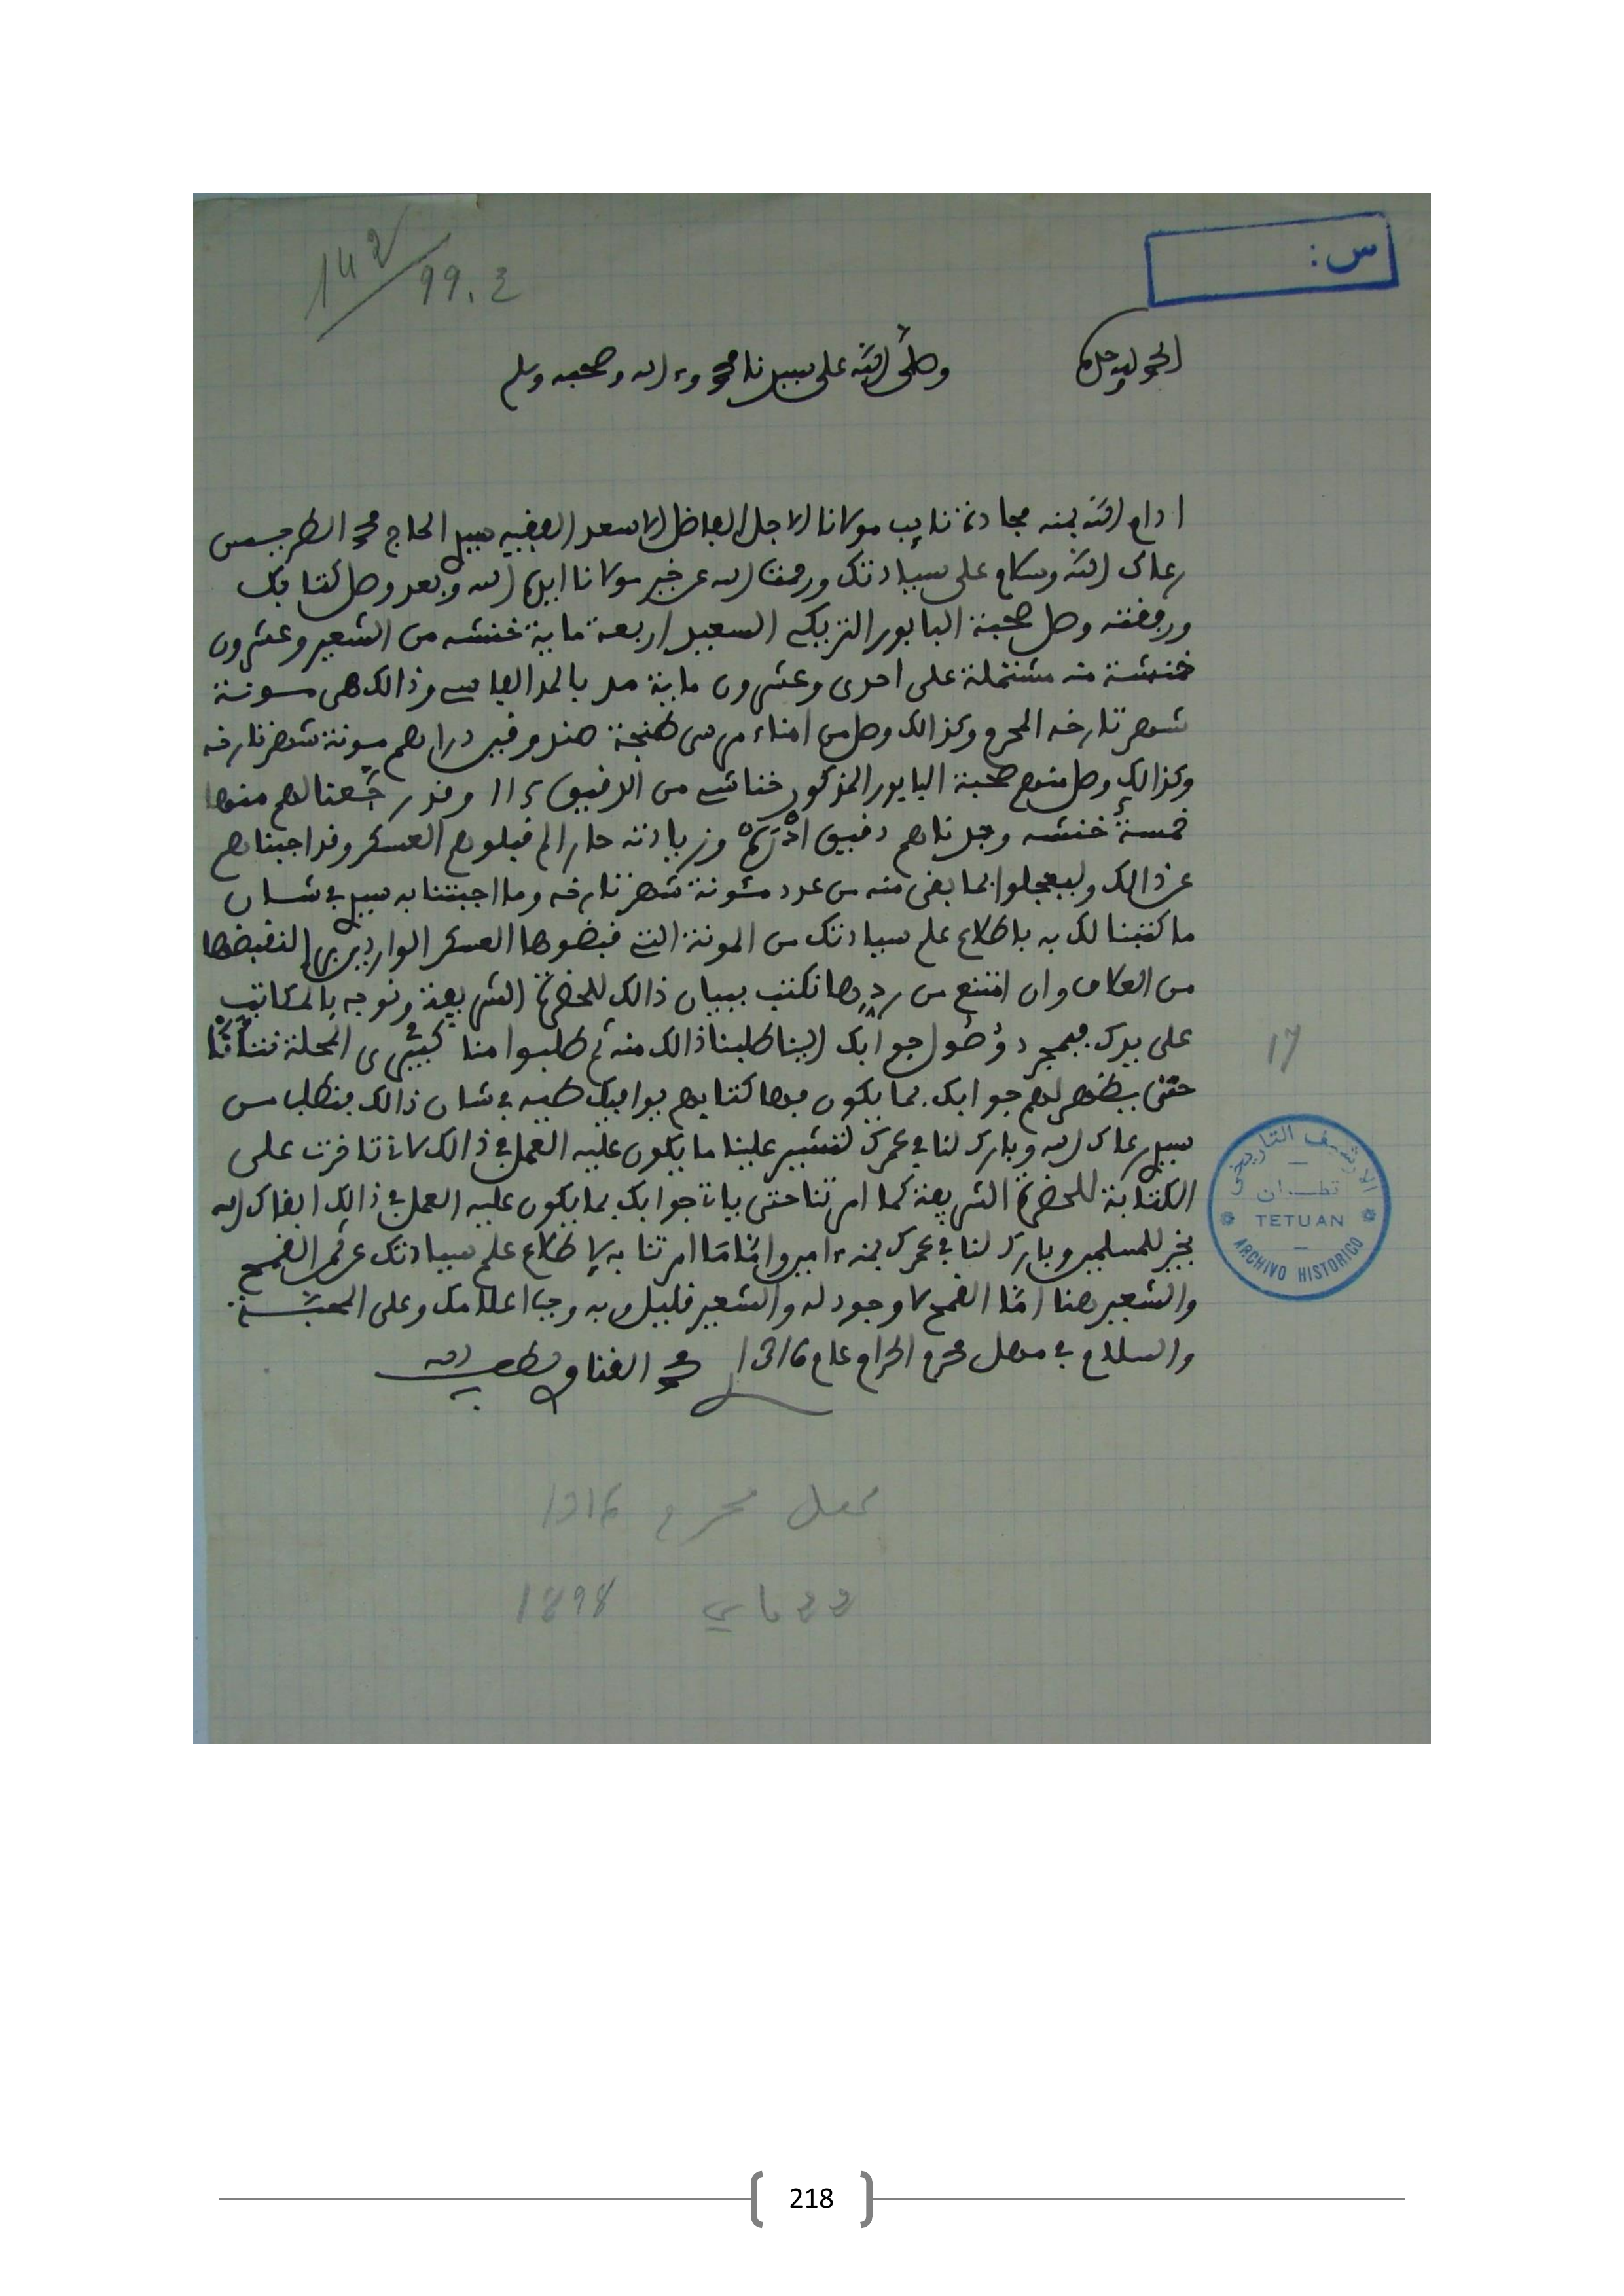 س :
142/99.2
الحمد لله وحده وصلى الله على سيدنا محمد وءاله وصحبه وسلم
ادام الله بمنه مجادة نايب مولانا الاجل الفاضل الاسعد الفقيه سيدي الحاج محمد الطريس
رعاك الله وسلام على سيادتك ورحمت الله عن خير مولانا ايده الله وبعد وصل كتابك
ورفقته وصل صحبة البابور التركي السعيد اربعة ماية خنشه من الشعير وعشرون
خنشة منه مشتملة على احدى وعشرون ماية مد بالمد الفاسي وذالك هى مونة
شهر تارخه المحرم وكذالك وصل من امناء مرسى طنجة صندوقين دراهم مونة شهر تارخه
وكذالك وصل منهم صحبة البابور المذكور خنائشي من الدقيق وقد رجعنا لهم منها
خمسة خنشه وجدناهم دقيق وزيادته حار الم قبلوهم العسكر وقد اجبناهم
عن ذالك وليعجلوا بما بقى منه من عدد مئونة شهر تارخه وما اجبتنا به سيدي في شان
ما كتبنا لك به باطلاع علم سيادتك من المونة التي قبضوها العسكر الواردين لنقبضها
من العلاف وان امتنع من ردها نكتب ببيان ذالك للحضرة الشريفة ونوجه بالمكاتيب
على يدك فبمجرد وُصُول جوابك الينا طلبنا ذالك منه ثم طلبوا منا كبيرى المحلة
حتى يظهر لهم جوابك بما يكون فيها كتابهم يوافيك طيه في شان ذالك فنطلب من
سيدي رعاك الله وبارك لنا في عمرك لتشير علينا ما يكون عليه العمل في ذالك لاننا تاخرت على
الكتابة للحضرة الشريفة كما امرتنا حتى ياتي جوابك بما يكون عليه العمل في ذالك ابقاك الله
بخير للمسلمين وبارك لنا في عمرك بمنه ءامين وامّا مّا امرتنا به لاطلاع علم سيادتك عن القمح
والشعير هنا امّا القمح لا وجود له والشعير قليل وبه وجب اعلامك وعلى المحبّة
والسلام في مهل محرم الحرام عام 1316 محمد القناو لطف الله به
17
الارشيف التاريخي
تطـــوان
TETUAN
ARCHIVO HISTORICO
مهل محرم 1316
22 ماي 1898
218